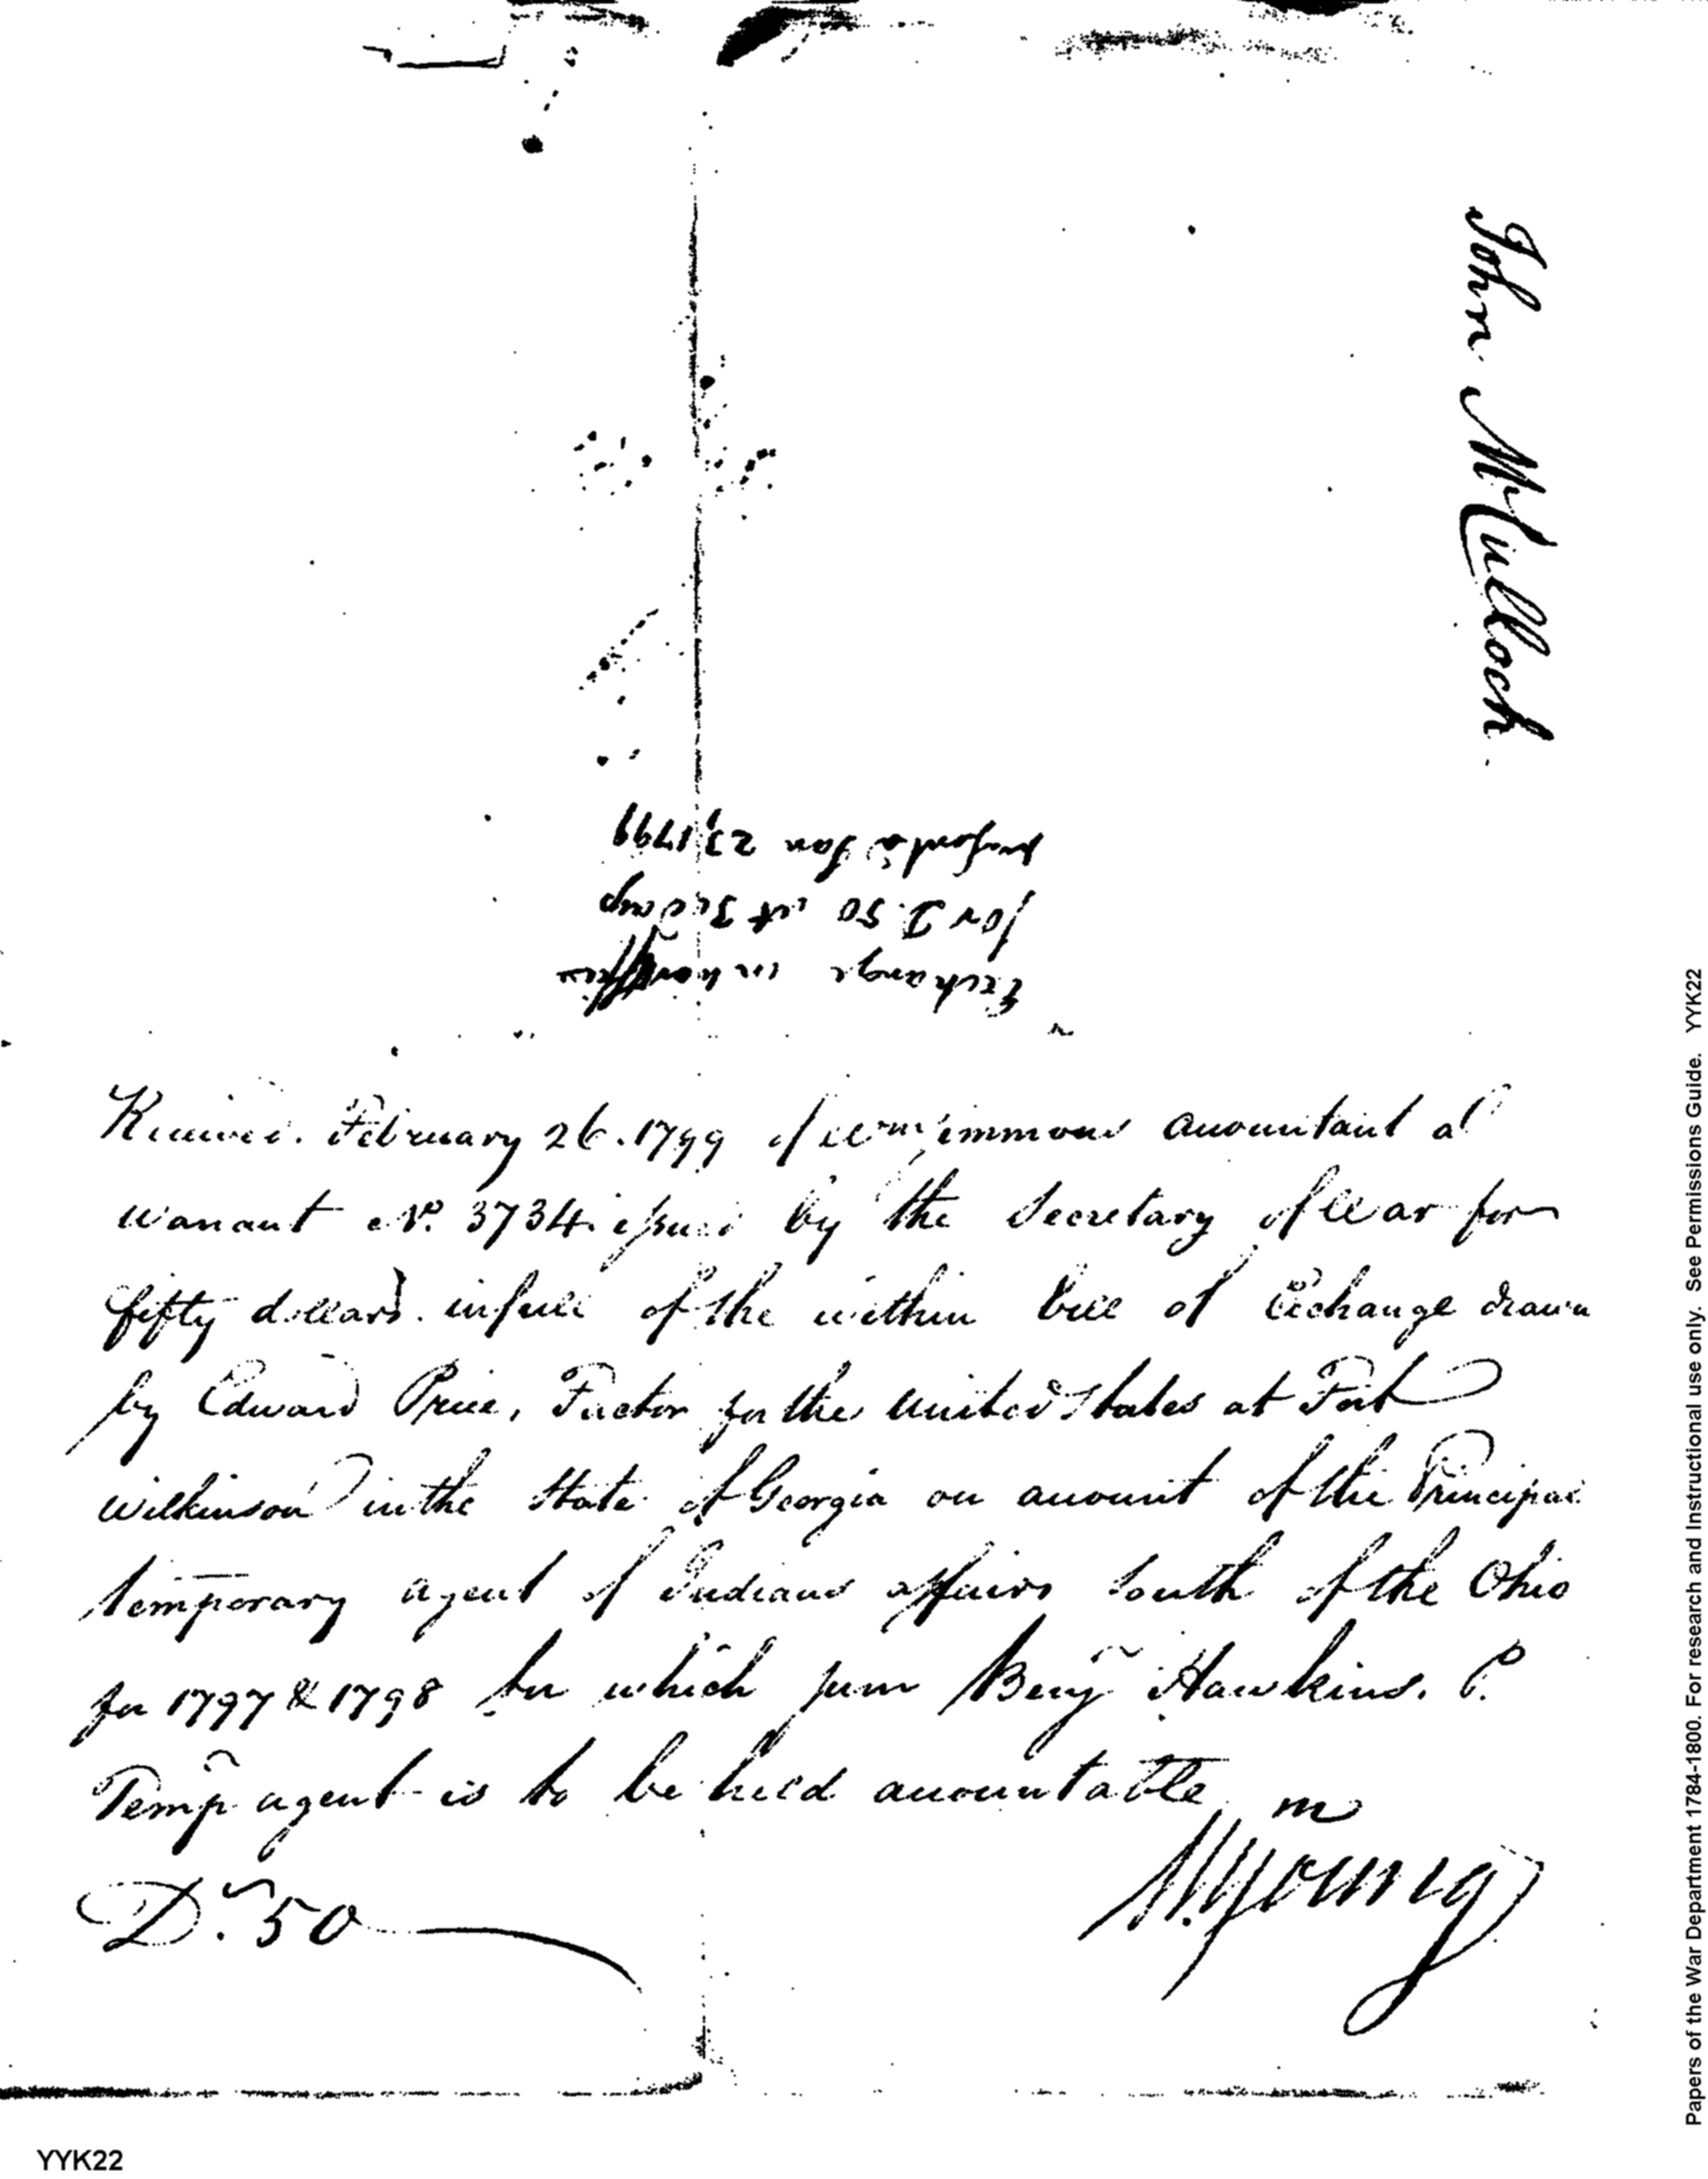 John McCulloch
Exchange in
for D. 50 at 3
Jan 23, 1799
Received. February 26. 1799 of Wm Simmons accountant a
warrant No. 3734. issued by the Secretary of War for
fifty dollars. in full of the within bill of Exchange drawn
by Edward Price, Factor for the United States at Fort
Wilkinson in the State of Georgia on account of the Principal
temporary agent of Indians affairs South of the Ohio
for 1797 & 1798 for which sum Benj Hawkins. P.
Temp agent is to be held accountable
Drs. 50
M. Young
Papers of the War Department 1784-1800. For research and Instructional use only. See Permissions Guide. YYK22
YYK22